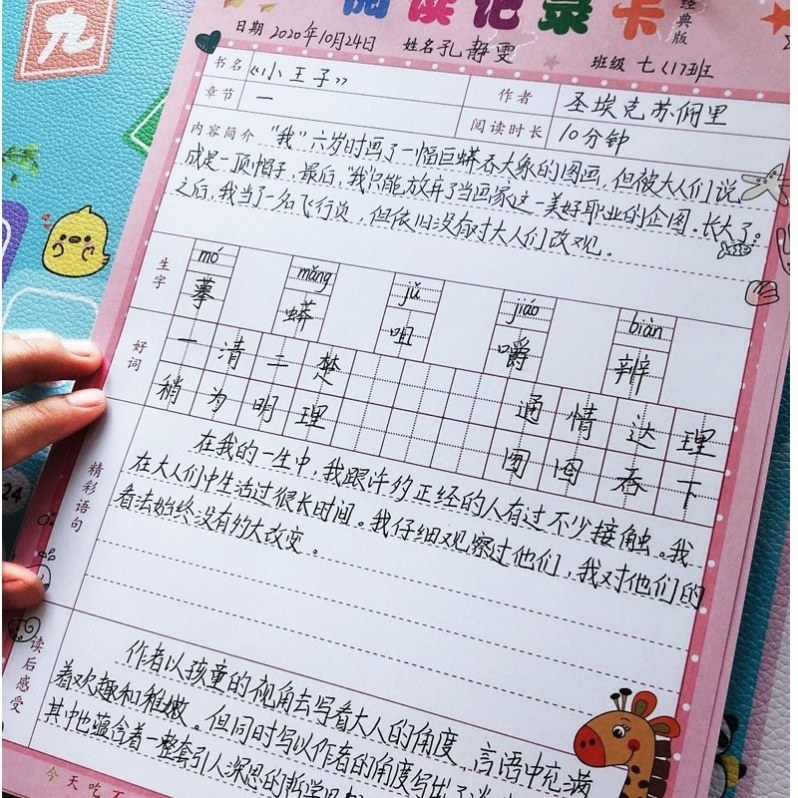 阅读记录卡
经典版
九
日期 2020年10月24日 姓名 孔静雯 班级 七(17)班
书名 《小王子》 作者 圣埃克苏佩里
章节 一 阅读时长 10分钟
内容简介 “我”六岁时画了一幅巨蟒吞大象的图画,但被大人们说
成是一顶帽子,最后,“我”只能放弃了当画家这一美好职业的企图。长大了
之后,我当了一名飞行员,但依旧没有对大人们改观。
生字
mó mǎng jǔ jiáo biàn
摹 蟒 咀 嚼 辨
好词
一清二楚 通情达理
稍为明理 囫囵吞下
精彩语句
在我的一生中,我跟许多正经的人有过不少接触。我
在大人们中生活过很长时间。我仔细观察过他们,我对他们的
看法始终没有多大改变。
24
读后感受
作者以孩童的视角去写看大人的角度,言语中充满
着欢趣和稚嫩。但同时写以作者的角度写出了
其中也蕴含着一整套引人深思的哲学
今天吃